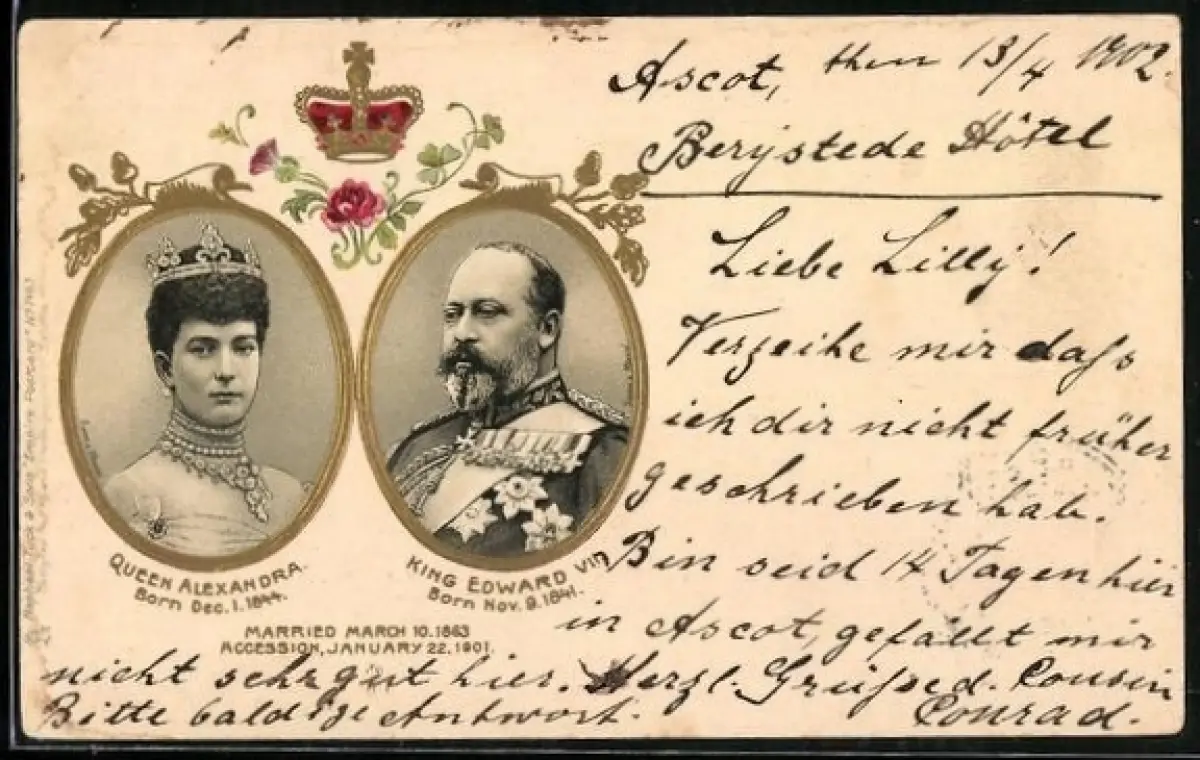 Ascot, then 13/4 1902.
Berystede Hôtel
Liebe Lilly!
Verzeihe mir daſs
ich dir nicht früher
geschrieben hab.
Bin seid 14 Tagen hier
in Ascot, gefällt mir
nicht sehr gut hier. Herzl. Grüſse d. Cousin
Bitte baldige Antwort. Conrad.
QUEEN ALEXANDRA
Born Dec. 1. 1844.
KING EDWARD VII
Born Nov. 9. 1841.
MARRIED MARCH 10. 1863
ACCESSION, JANUARY 22, 1901.
Raphael Tuck & Sons' "Empire Postcard" No